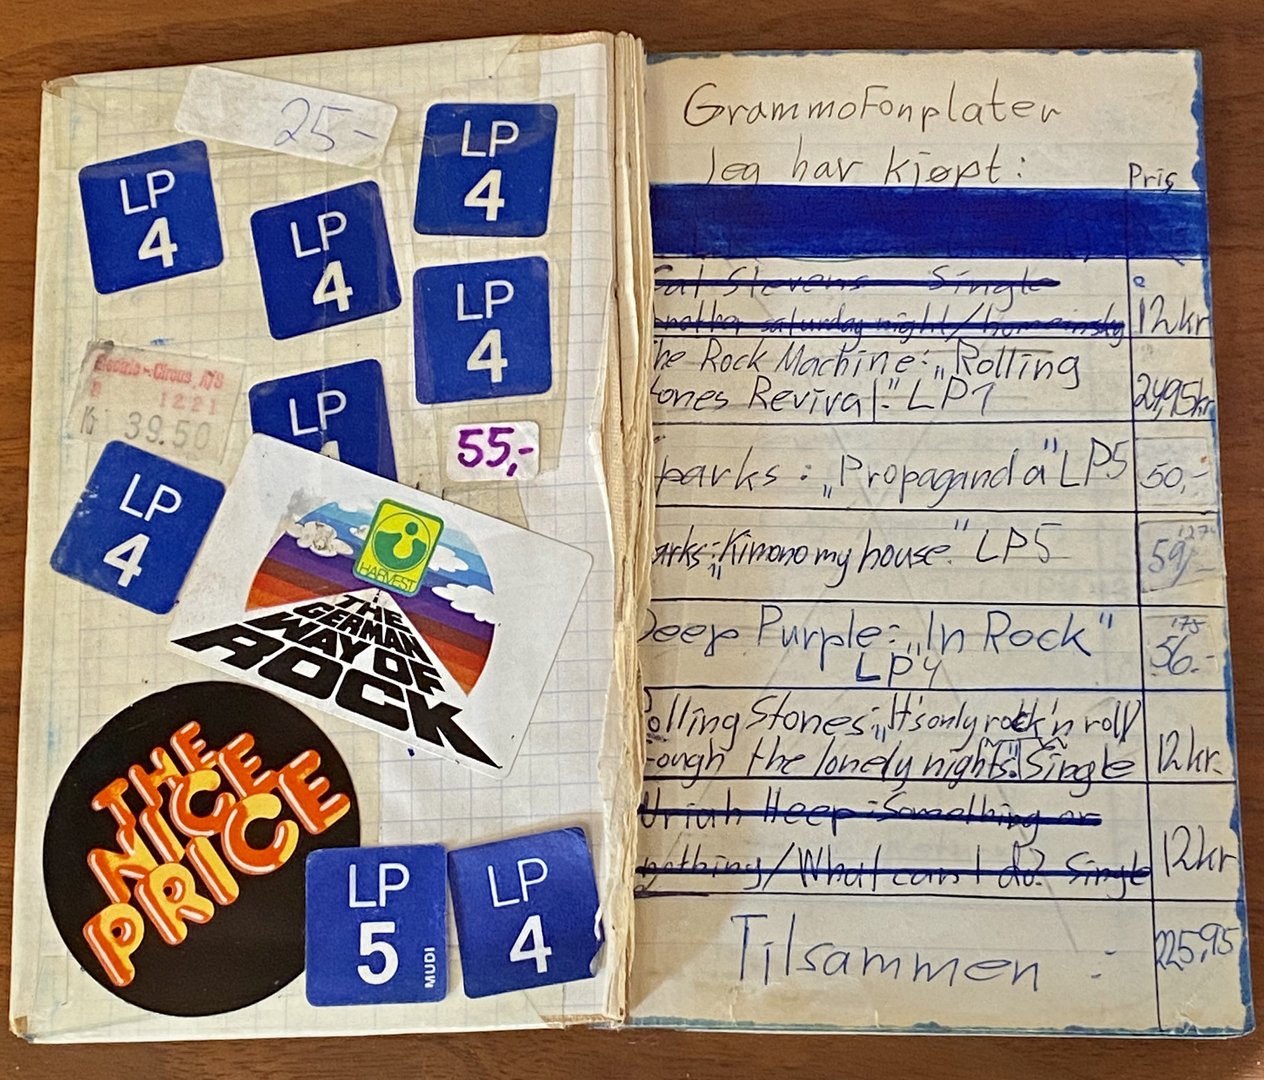 25-
LP
4
LP
4
LP
4
LP
4
A/S
1221
Kr 39.50
LP
55,-
LP
4
HARVEST
THE
GERMAN
WAY OF
ROCK
THE
NICE
PRICE
LP
5
MUDI
LP
4
Grammofonplater
Jeg har kjøpt:
Pris
Stevens Single
saturday night/
12kr
he Rock Machine: „Rolling
tones Revival" LP1
24,95kr
parks: „Propaganda" LP5
50,-
arks: „Kimono my house" LP5
59,-
Deep Purple: „In Rock"
LP4
56.-
olling Stones: „It's only rock'n roll
rough the lonely nights". Single
12kr.
Uriah Heep: Something or
nothing/What can I do? Single
12kr
Tilsammen :
225,95